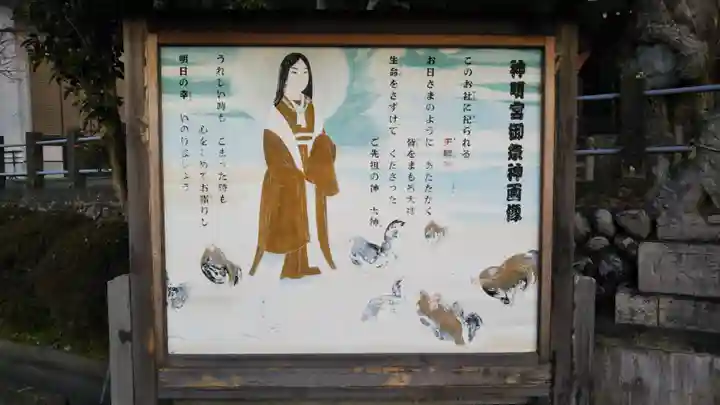 神明宮御祭神画像
このお社に祀られる
お日さまのように あたたかく
皆をまもり
生命をさずけて くださった
ご先祖の神 大神
うれしい時も こまった時も
心をこめてお祈りし
明日の幸 いのりましょう